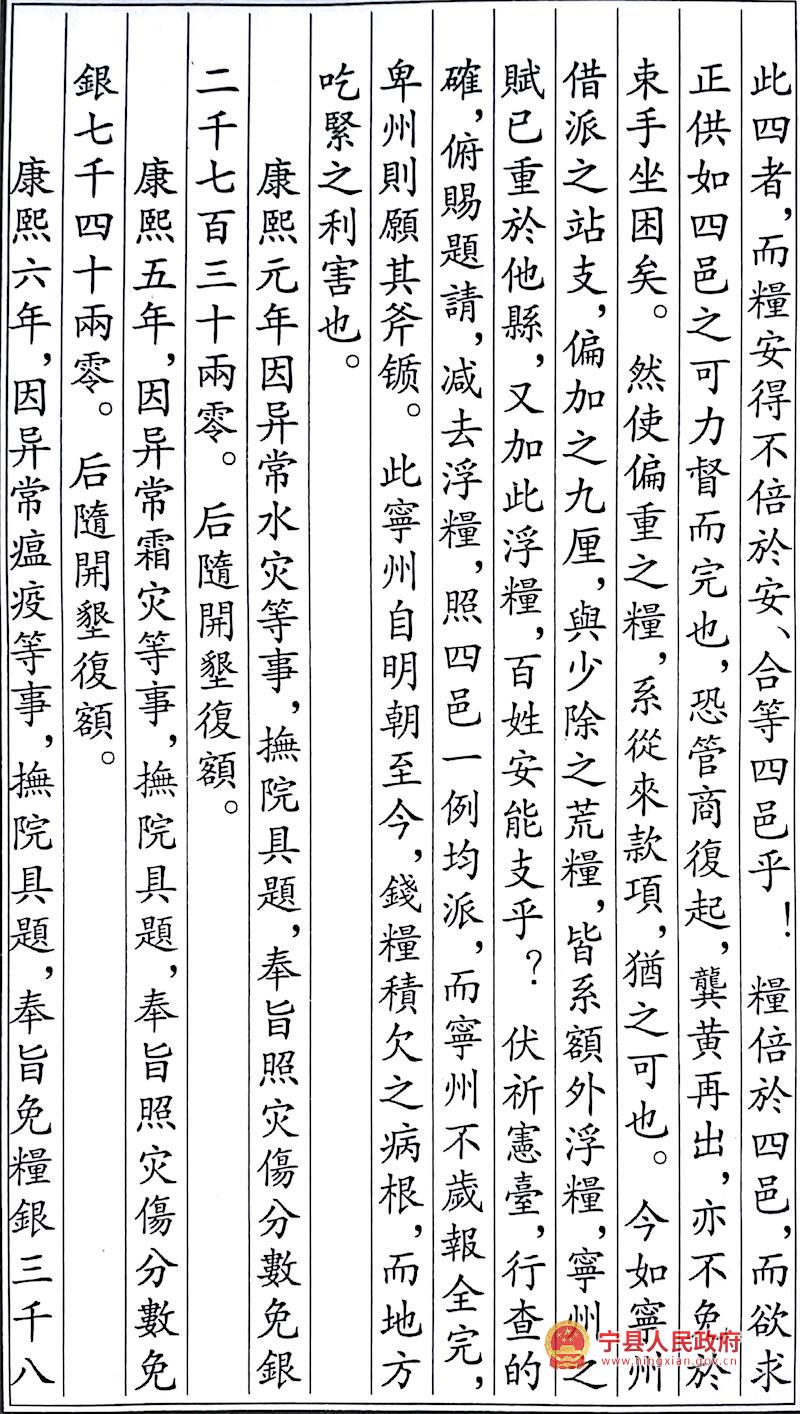 此四者，而糧安得不倍於安、合等四邑乎！　糧倍於四邑，而欲求
正供如四邑之可力督而完也，恐管商復起，龔黄再出，亦不免於
束手坐困矣。　然使偏重之糧，系從來款項，猶之可也。　今如寧州
借派之站支，偏加之九厘，與少除之荒糧，皆系額外浮糧，寧州之
賦已重於他縣，又加此浮糧，百姓安能支乎？　伏祈憲臺，行查的
確，俯賜題請，减去浮糧，照四邑一例均派，而寧州不歲報全完，
卑州則願其斧锧。　此寧州自明朝至今，錢糧積欠之病根，而地方
吃緊之利害也。
康熙元年因异常水灾等事，撫院具題，奉旨照灾傷分數免銀
二千七百三十兩零。　后隨開墾復額。
康熙五年，因异常霜灾等事，撫院具題，奉旨照灾傷分數免
銀七千四十兩零。　后隨開墾復額。
康熙六年，因异常瘟疫等事，撫院具題，奉旨免糧銀三千八
宁县人民政府
www.ningxian.gov.cn